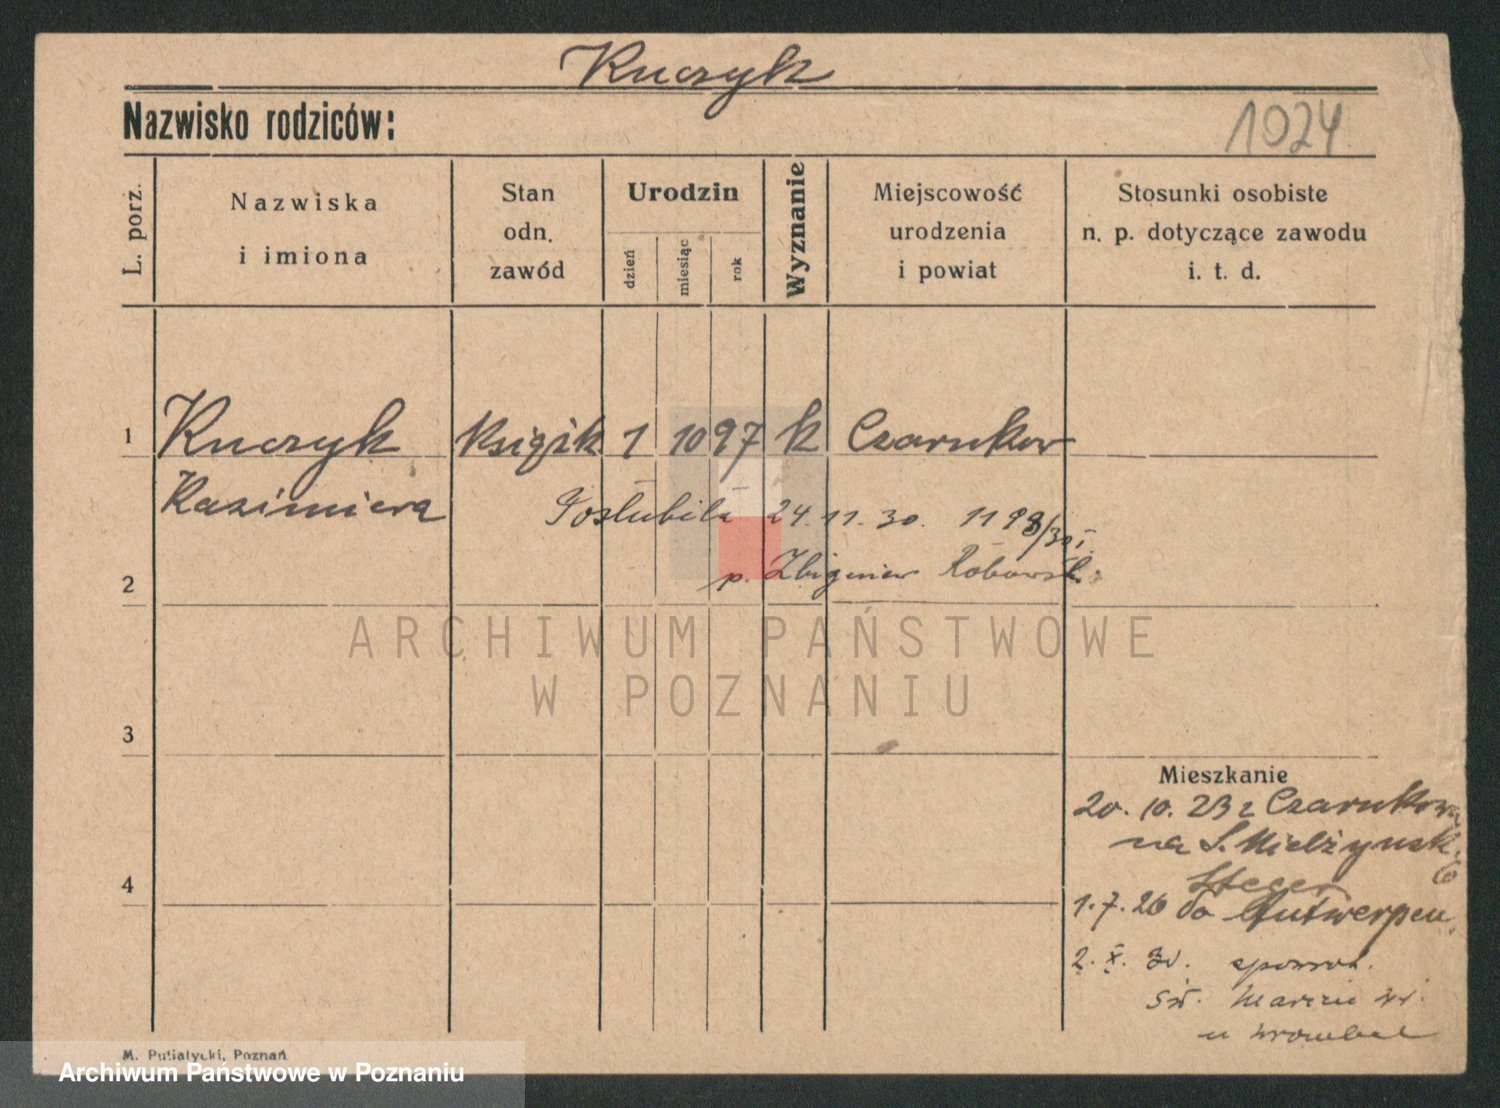 Kuczyk
Nazwisko rodziców:
1024
L. porz.
Nazwiska
i imiona
Stan
odn.
zawód
Urodzin
dzień
miesiąc
rok
Wyznanie
Miejscowość
urodzenia
i powiat
Stosunki osobiste
n. p. dotyczące zawodu
i. t. d.
1 Kuczyk 1 10 97 k Czarnków
Kazimiera
Poślubiła 24. 11. 30.
p. Zbigniew
2
ARCHIWUM PAŃSTWOWE
W POZNANIU
3
Mieszkanie
20. 10. 23 z Czarnkowa
na S. Mielżyńsk.
4
1. 7. 26 do Antwerpen
2. X. 30.
św. Marcin
M. Putiatycki, Poznań
Archiwum Państwowe w Poznaniu